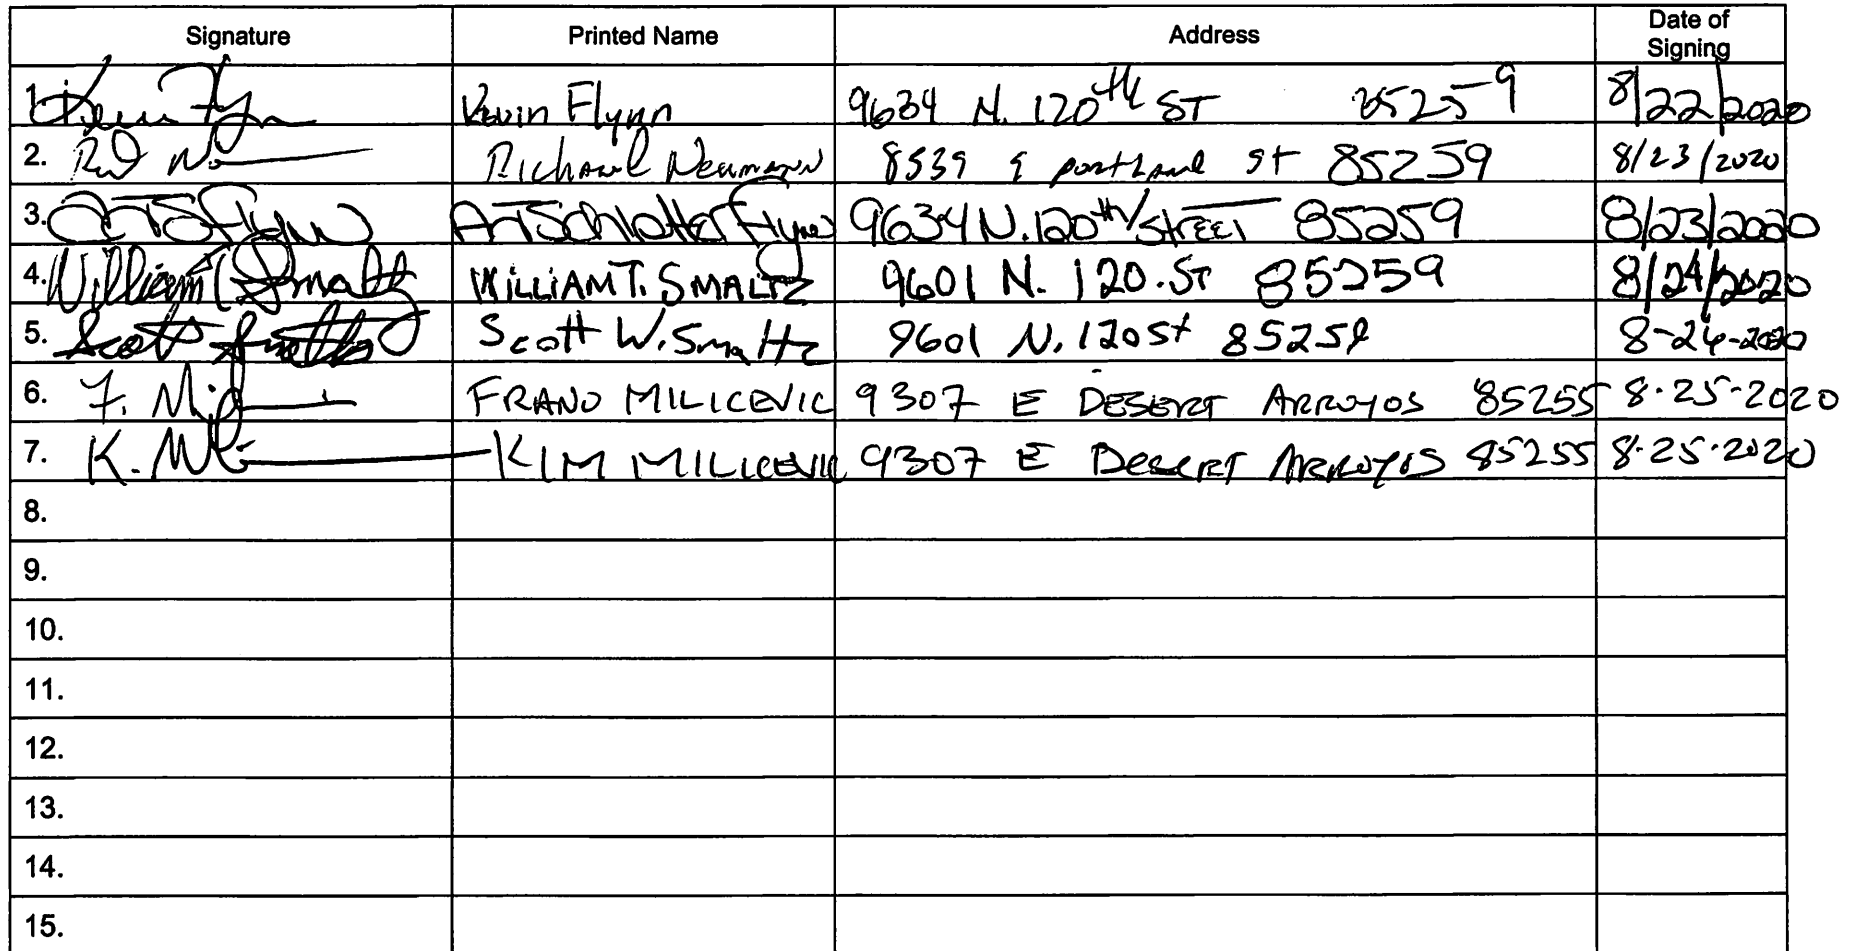 Signature Printed Name Address Date of Signing
1. Kevin Flynn Kevin Flynn 9634 N. 120th ST 85259 8/22/2020
2. Richard Neumann 8539 E portland St 85259 8/23/2020
3. Flynn 9634 N. 120th/Street 85259 8/23/2020
4. William T Smaltz WILLIAM T. SMALTZ 9601 N. 120. ST 85259 8/24/2020
5. Scott Smaltz Scott W. Smaltz 9601 N. 120 St 85259 8-24-2020
6. F. FRANO MILICEVIC 9307 E DESERT ARROYOS 85255 8.25-2020
7. K. KIM MILICEVIC 9307 E DESERT ARROYOS 85255 8.25.2020
8.
9.
10.
11.
12.
13.
14.
15.